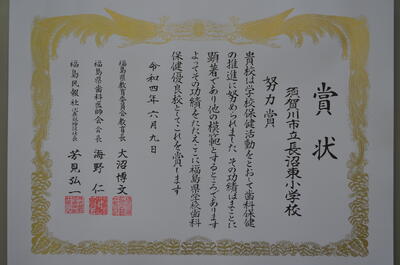 賞状
須賀川市立長沼東小学校
努力賞
貴校は学校保健活動をとおして歯科保健
の推進に努められました その功績はまことに
顕著であり他の模範とするところであります
よってその功績をたたえここに福島県学校歯科
保健優良校としてこれを賞します
令和四年六月九日
福島県教育委員会教育長 大沼博文
福島県歯科医師会会長 海野仁
福島民報社代表取締役社長 芳見弘一